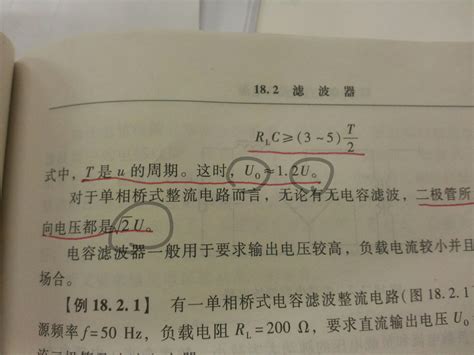 18.2 滤波器
R_L C ≥ (3~5) T/2
式中，T是u的周期。这时，U₀≈1.2U。
对于单相桥式整流电路而言，无论有无电容滤波，二极管所
向电压都是√2U。
电容滤波器一般用于要求输出电压较高，负载电流较小并且
场合。
【例 18.2.1】 有一单相桥式电容滤波整流电路(图 18.2.1
源频率f=50 Hz，负载电阻 R_L=200 Ω，要求直流输出电压 U₀